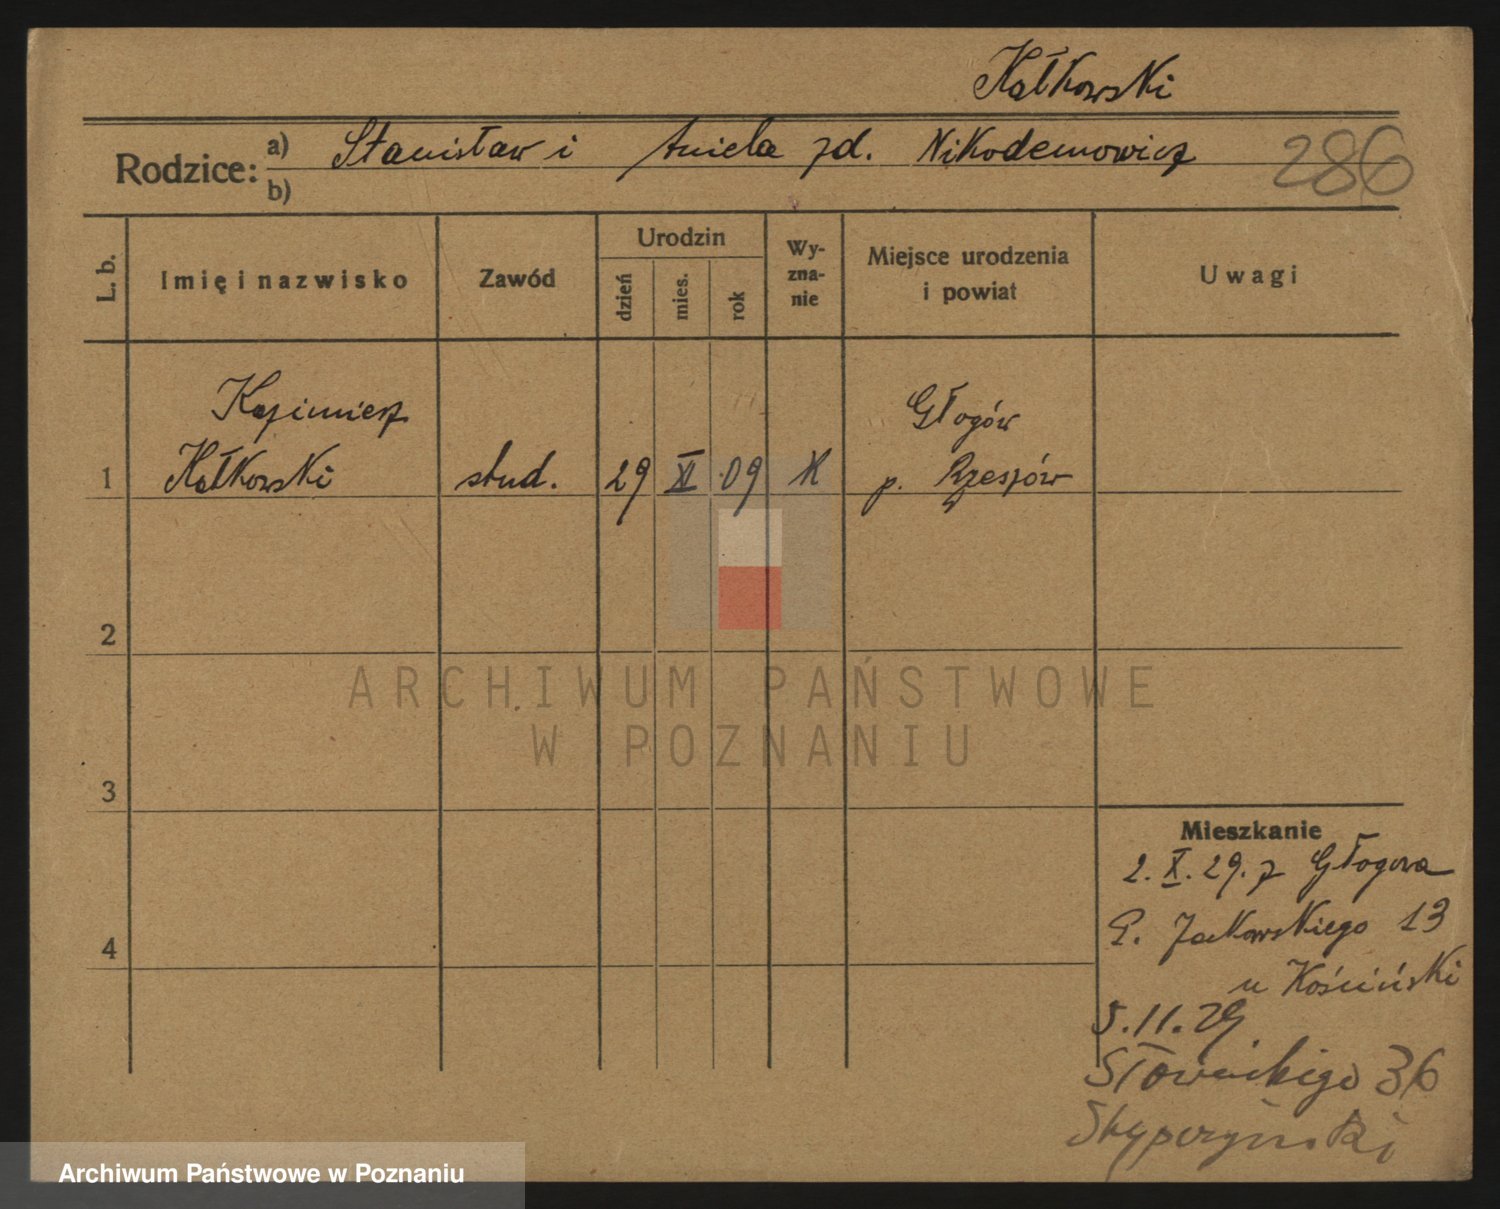 Kałkowski
Rodzice: a) Stanisław i Aniela zd. Nikodemowicz
286
b)
L. b.
Imię i nazwisko
Zawód
Urodzin
dzień
mies.
rok
Wy-
zna-
nie
Miejsce urodzenia
i powiat
Uwagi
Kazimierz
Głogów
1 Kałkowski stud. 29 XI 09 K p. Rzeszów
2
3
4
ARCHIWUM PAŃSTWOWE
W POZNANIU
Mieszkanie
2. X. 29. z Głogowa
13
u Kościński
5.11.29
Słowackiego 36
Archiwum Państwowe w Poznaniu